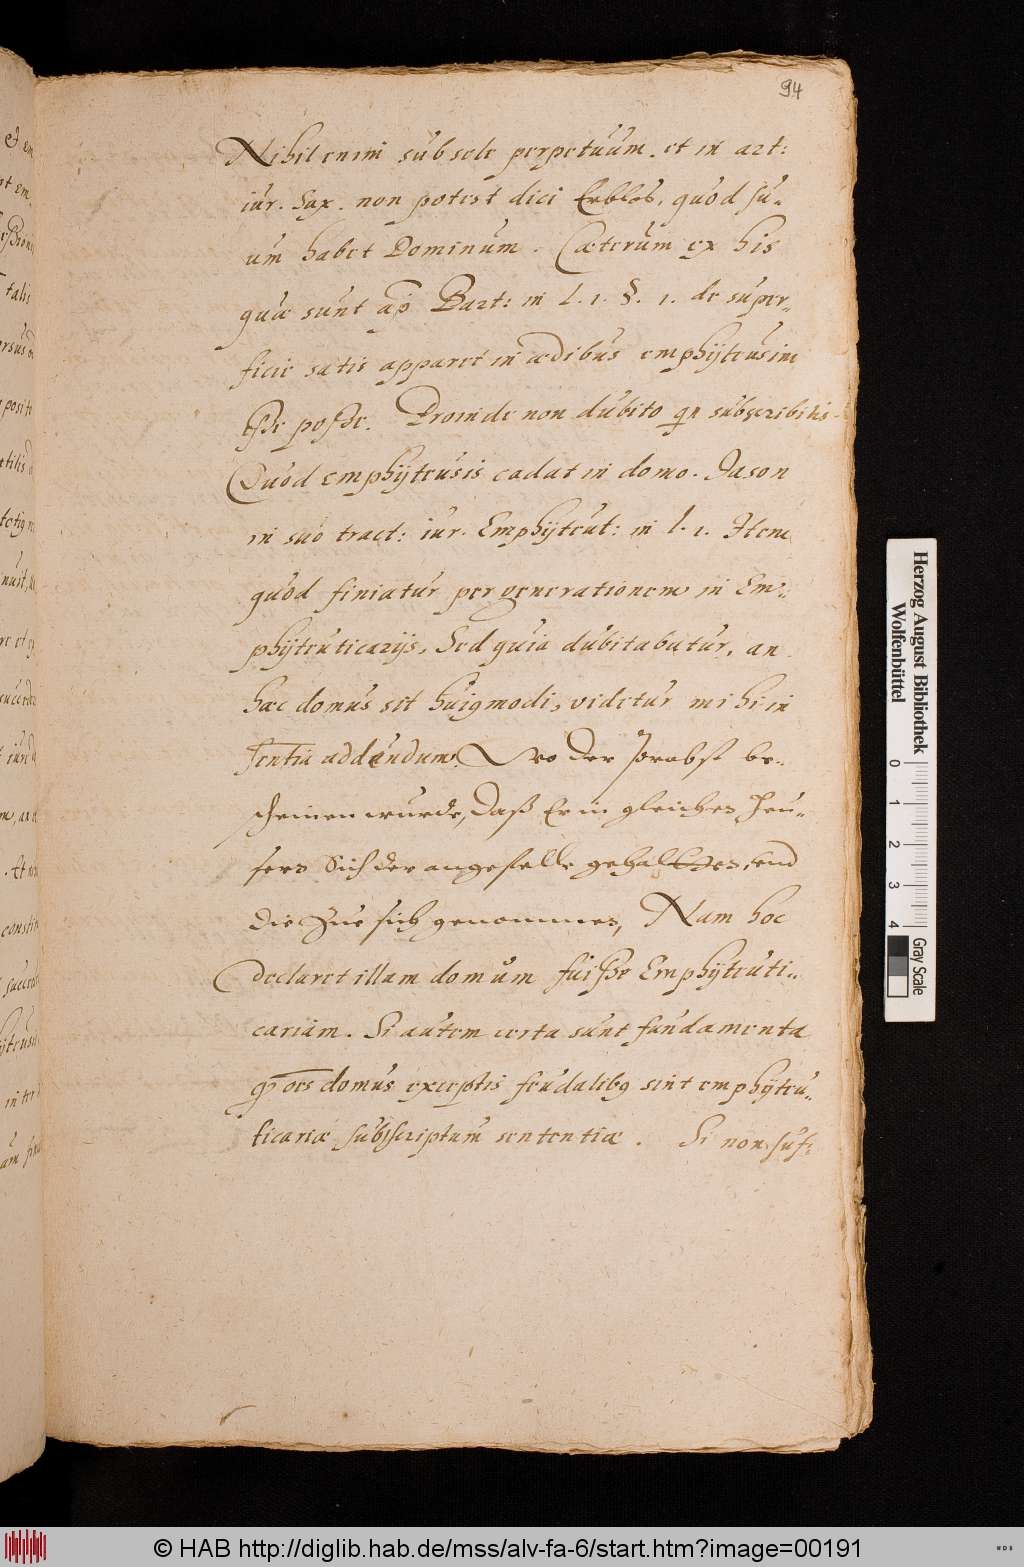 94
Nihil enim sub sole perpetuum. et in art:
iur. Sax. non potest dici Erblos, quod su-
um habet Dominum. Cæterum ex his
quæ sunt ap Bart: in l. 1. §. 1. de super-
ficie satis apparet in ædibus emphijteusim
esse posse. Proinde non dubito qn subscribitis
Quod emphijteusis cadat in domo. Jason
in suo tract: iur. Emphijteut: in l. 1. Item
quod finiatur per generationem in Em-
phijteuticarijs, Sed quia dubitabatur, an
hæc domus sit huigmodi, videtur mihi in
sentia addendum. Wo der probst be-
scheinen wurde, Daß Er in gleichen Heu-
sern Sich der angefelle gehalten, und
die Zue sich genommen, Nam hoc
declaret illam domum fuisse Emphijteuti-
cariam. Si autem certa sunt fundamenta
qp oes domus exceptis feudalibg sint emphijteu-
ticariæ subscriptum sententiæ. Si non suf-
Herzog August Bibliothek
Wolfenbüttel
0 1 2 3 4
Gray Scale
© HAB http://diglib.hab.de/mss/alv-fa-6/start.htm?image=00191